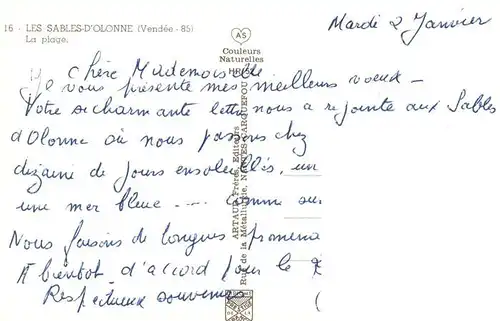 16 - LES SABLES-D'OLONNE (Vendée - 85)
La plage.
Mardi 2 Janvier
AS
Couleurs
Naturelles
Chère Mademoiselle
Je vous présente mes meilleurs voeux -
Votre si charmante lettre nous a rejointe aux Sables
d'Olonne où nous passons chez
dizaine de jours ensoleillés, un
une mer bleue - ... comme
Nous faisons de longues promena
A bientôt d'accord pour le
Respectueux souvenirs
ARTAUD Frères, Editeurs
Rue de la Métallurgie, NANTES-CARQUEFOU